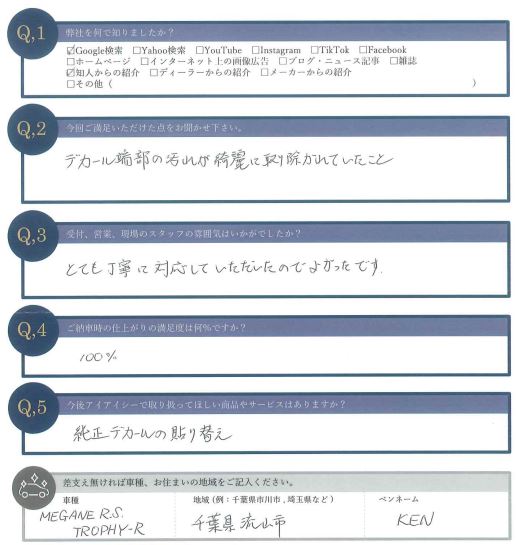 Q,1
弊社を何で知りましたか？
☑Google検索 □Yahoo検索 □YouTube □Instagram □TikTok □Facebook
□ホームページ □インターネット上の画像広告 □ブログ・ニュース記事 □雑誌
☑知人からの紹介 □ディーラーからの紹介 □メーカーからの紹介
□その他（ ）
Q,2
今回ご満足いただけた点をお聞かせ下さい。
デカール端部の汚れが綺麗に取り除かれていたこと
Q,3
受付、営業、現場のスタッフの雰囲気はいかがでしたか？
とても丁寧に対応していただいたのでよかったです。
Q,4
ご納車時の仕上がりの満足度は何％ですか？
100%
Q,5
今後アイアイシーで取り扱ってほしい商品やサービスはありますか？
純正デカールの貼り替え
差支え無ければ車種、お住まいの地域をご記入ください。
車種 地域（例：千葉県市川市，埼玉県など） ペンネーム
MEGANE R.S. TROPHY-R 千葉県流山市 KEN